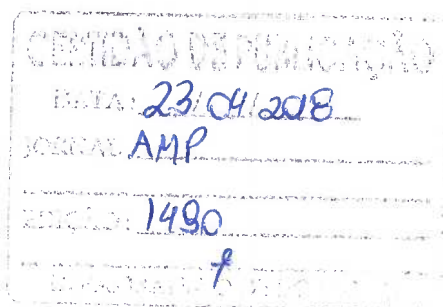 CERTIDÃO DE PUBLICAÇÃO
DATA: 23/04/2018
JORNAL: AMP
EDIÇÃO: 1490